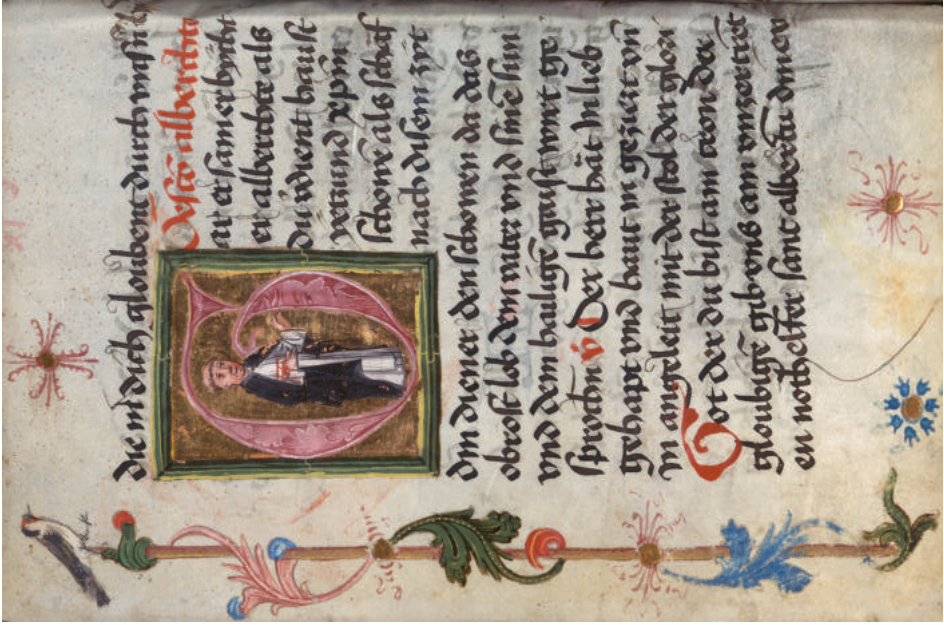 die in dich gloubent durch
De scto alberchto
ar ersamer bycht
er alberchte als
du went haust
schowe als schaf
nach disem zyt
din diener den schowen da das
obrost lob dem vater vnd sinē sun
vnd dem hailigē gaist wirt ge
sprochen v̄ Der herr hät in lieb
gehapt vnd haut in geziert vn̄
in angeleit mit der stol der glori
Got der du bist ain cron der
gloubigē gib ons ain
en nothelfer sant alberctū dinen